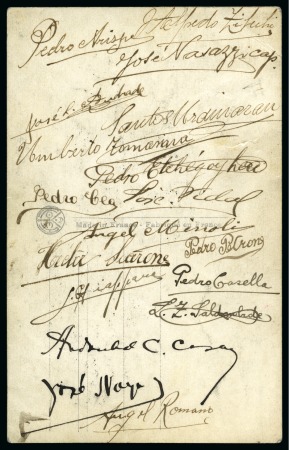 Pedro Arispe
Alfredo Zibechi
José Nasazzi cap.
José L. Andrade
Santos Urdinaran
Umberto Tomasina
Pedro Etchegoyhen
Pedro Cea José Vidal
Made in France
Angel Minoli
Pedro Petrone
Héctor Scarone
Pedro Casella
F. Z. Saldombide
C. C.
José Naya
Angel Romano